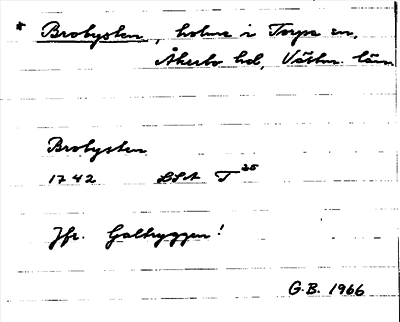 * Brobysten, holme i Torpa sn,
Åkerbo hd, Västm. län
Brobysten
1742 LSA T 25
Jfr. Galtryggen!
G.B. 1966